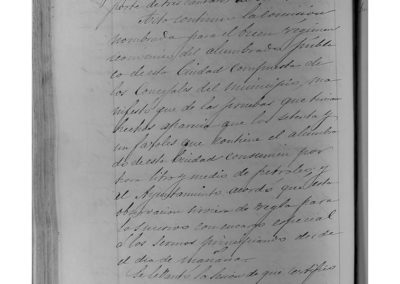 porte de
Acto continuo la comisión
nombrada para el buen régimen
consumo del alumbrado públi
co de esta Ciudad compuesta de
los Concejales del municipio, ma
nifestó que de las pruebas que tenian
hechas aparecia que los setenta y
un faroles que contiene el alumbra
do de esta Ciudad consumen por
hora litro y medio de petroleo, y
el Ayuntamiento acordó que esta
observacion sirviera de regla para
lo sucesivo con encargo especial
á los Serenos principiando desde
el dia de mañana.
Se levantó la sesion de que certifico